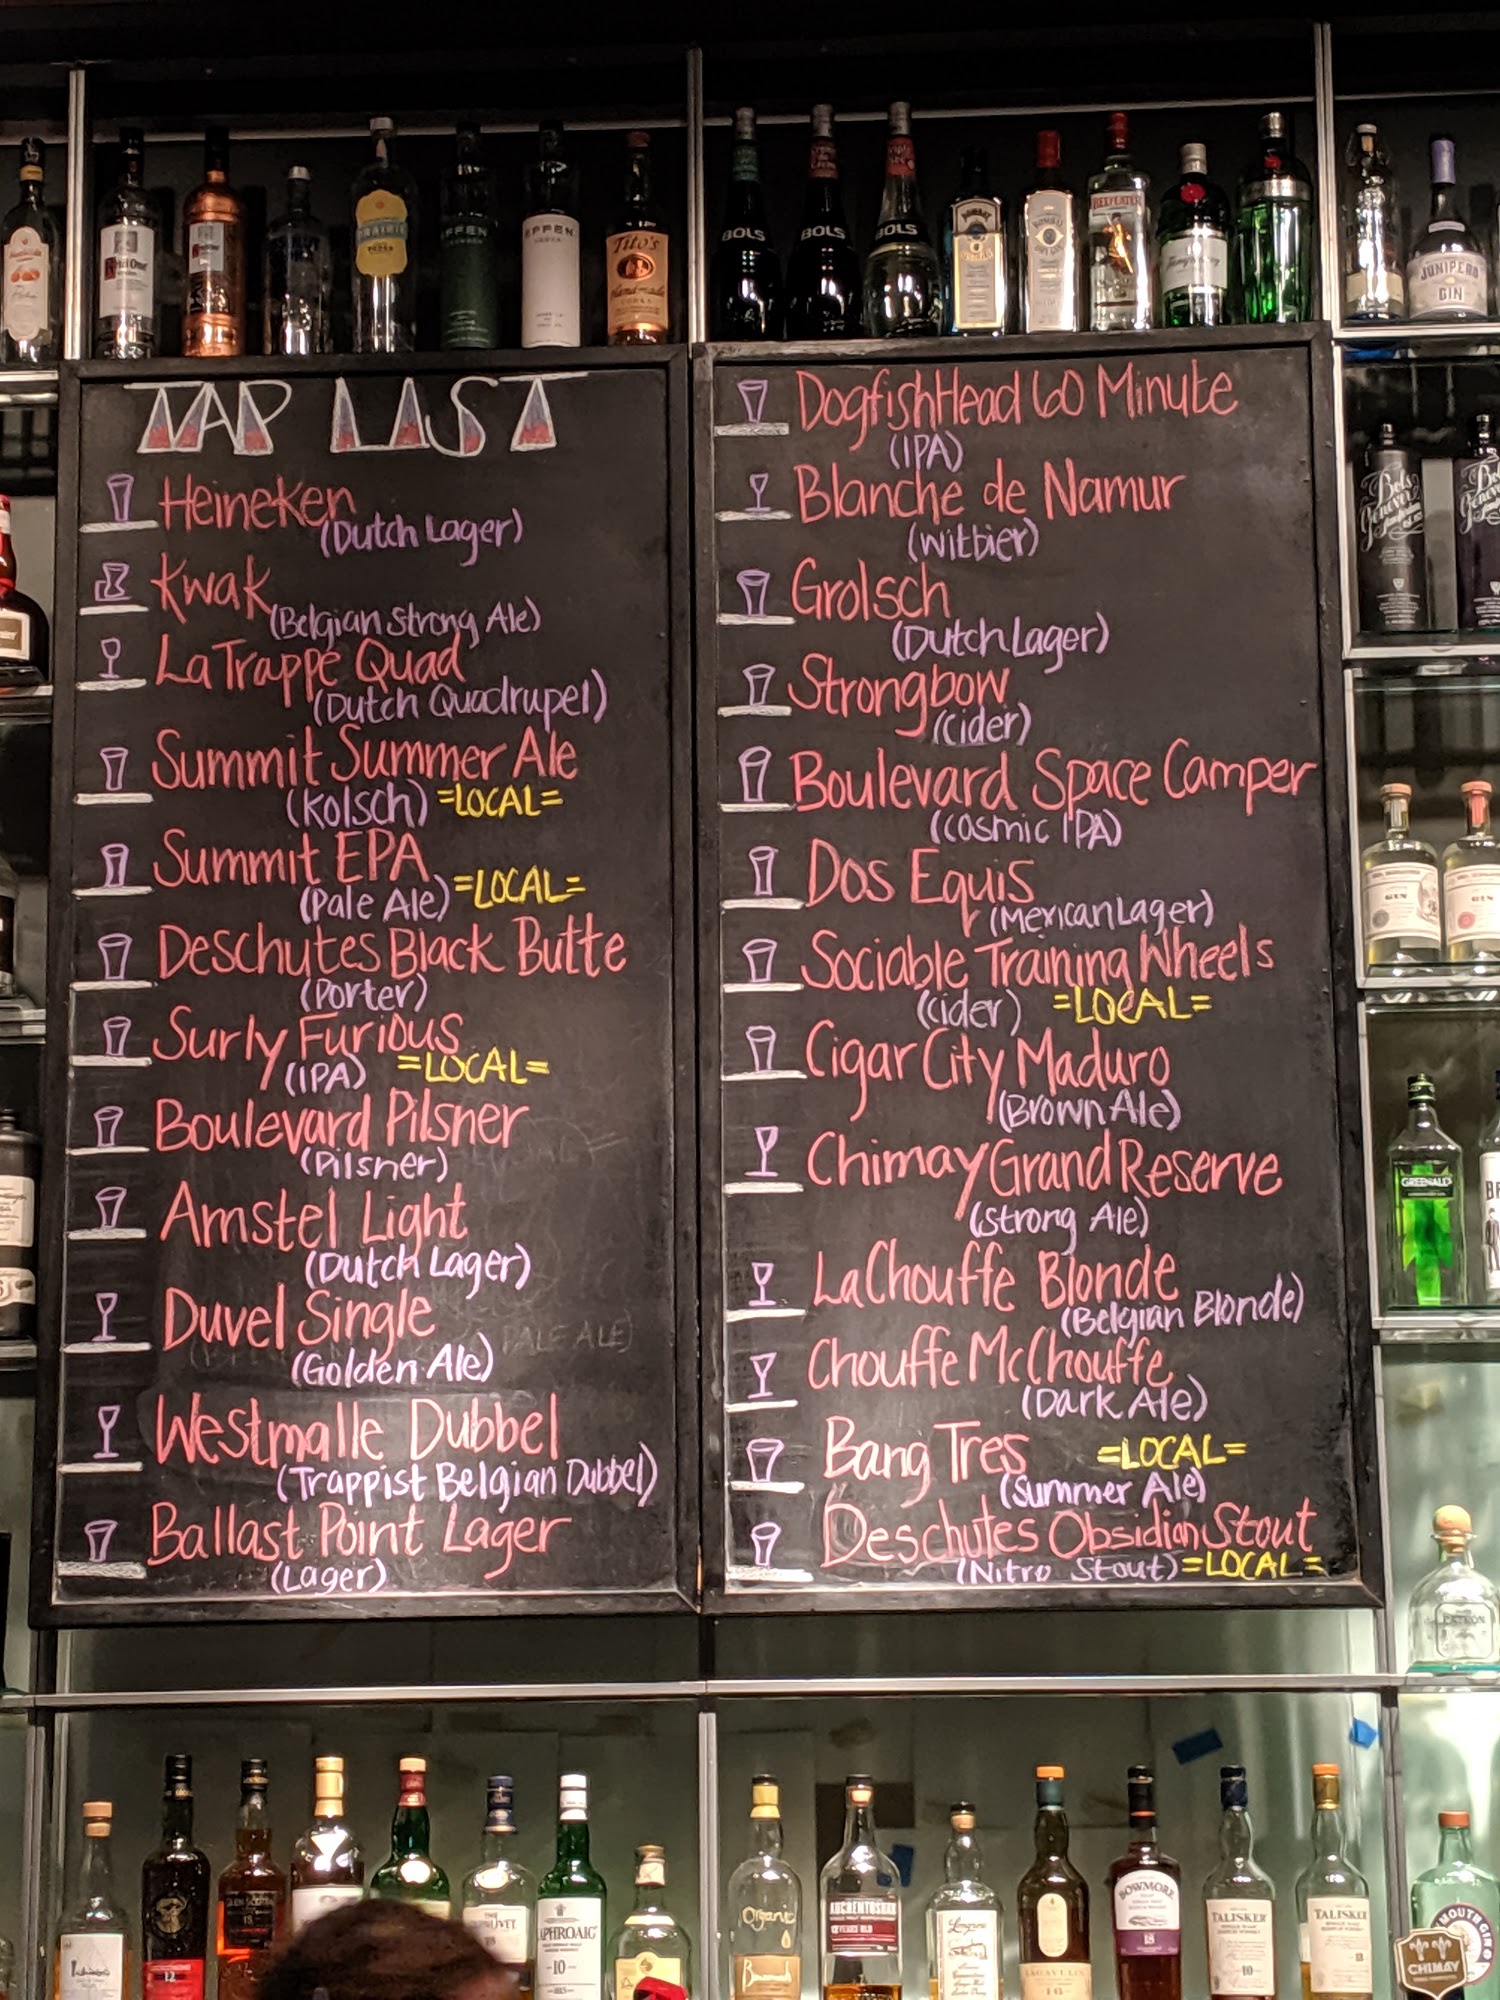 TAP LIST
Heineken
(Dutch Lager)
Kwak
(Belgian Strong Ale)
La Trappe Quad
(Dutch Quadrupel)
Summit Summer Ale
(Kolsch) =LOCAL=
Summit EPA
(Pale Ale) =LOCAL=
Deschutes Black Butte
(Porter)
Surly Furious
(IPA) =LOCAL=
Boulevard Pilsner
(Pilsner)
Amstel Light
(Dutch Lager)
Duvel Single
(Golden Ale)
PALE ALE)
Westmalle Dubbel
(Trappist Belgian Dubbel)
Ballast Point Lager
(Lager)
DogfishHead 60 Minute
(IPA)
Blanche de Namur
(Witbier)
Grolsch
(Dutch Lager)
Strongbow
(Cider)
Boulevard Space Camper
(Cosmic IPA)
Dos Equis
(Mexican Lager)
Sociable Training Wheels
(Cider) =LOCAL=
Cigar City Maduro
(Brown Ale)
Chimay Grand Reserve
(Strong Ale)
LaChouffe Blonde
(Belgian Blonde)
Chouffe McChouffe
(Dark Ale)
Bang Tres =LOCAL=
(Summer Ale)
Deschutes Obsidian Stout
(Nitro Stout) =LOCAL=
EFFEN
Tito's
Handmade
VODKA
BOLS
BOLS
BOLS
BOMBAY
BEEFEATER
Tanqueray
JUNIPERO
GIN
Bols
Genever
GIN
GIN
GREENALL'S
PATRON
12
15
LAPHROAIG
10
Organic
AUCHENTOSHAN
Longrow
LAGAVULIN
16
BOWMORE
18
TALISKER
10
TALISKER
CHIMAY